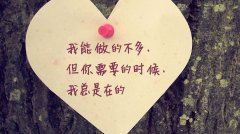 我能做的不多,
但你需要的时候,
我总是在的